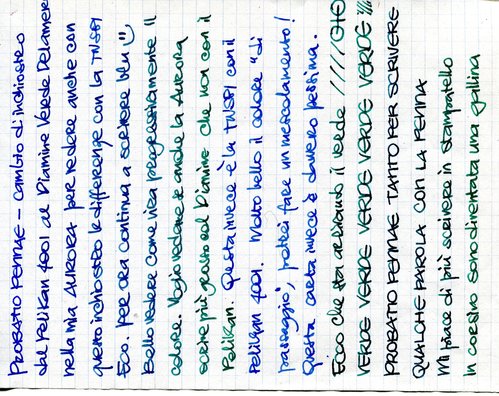 PROBATIO PENNAE - cambio d'inchiostro
dal Pelikan 4001 al Diamine Verde Delamere
nella mia AURORA per vedere anche con
questo inchiostro le differenze con la TWSBI
Ecco. per ora continua a scrivere blu
Bello vedere come vira progressivamente il
colore. Voglio vedere se anche la Aurora
scrive più grasso col Diamine che non con il
Pelikan. Questa invece è la TWSBI con il
Pelikan 4001. Molto bello il colore "di
passaggio", potrei fare un mescolamento!
Questa carta invece è davvero pessima.
ECCO che sta arrivando il verde /////
VERDE VERDE VERDE VERDE VERDE !!!
PROBATIO PENNAE TANTO PER SCRIVERE
QUALCHE PAROLA CON LA PENNA
Mi piace di più scrivere in stampatello
in corsivo sono diventata una gallina